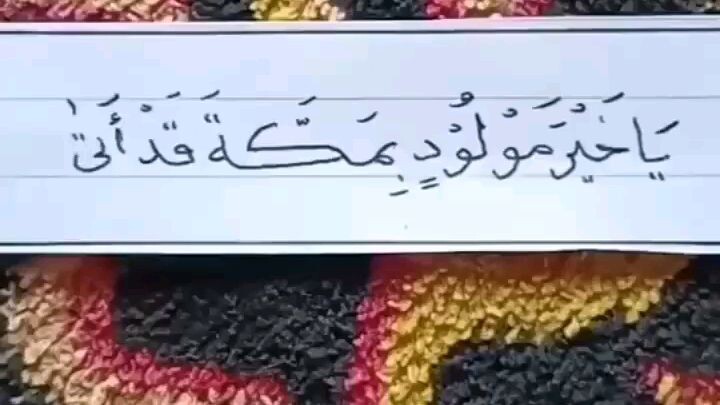 يَا خَيْرَ مَوْلُوْدٍ بِمَكَّةَ قَدْ أَتَىٰ